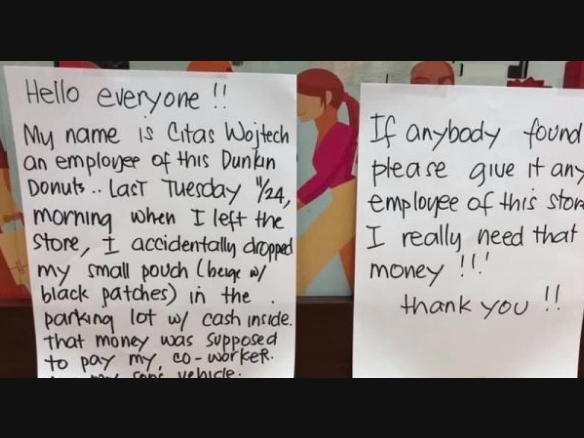 Hello everyone !!
My name is Citas Wojtech
an employee of this Dunkin
Donuts.. Last Tuesday 11/24,
morning when I left the
store, I accidentally dropped
my small pouch (beige w/
black patches) in the
parking lot w/ cash inside.
That money was supposed
to pay my co-worker.
my son's vehicle.
If anybody found
please give it any
employee of this store
I really need that
money !!!
thank you !!